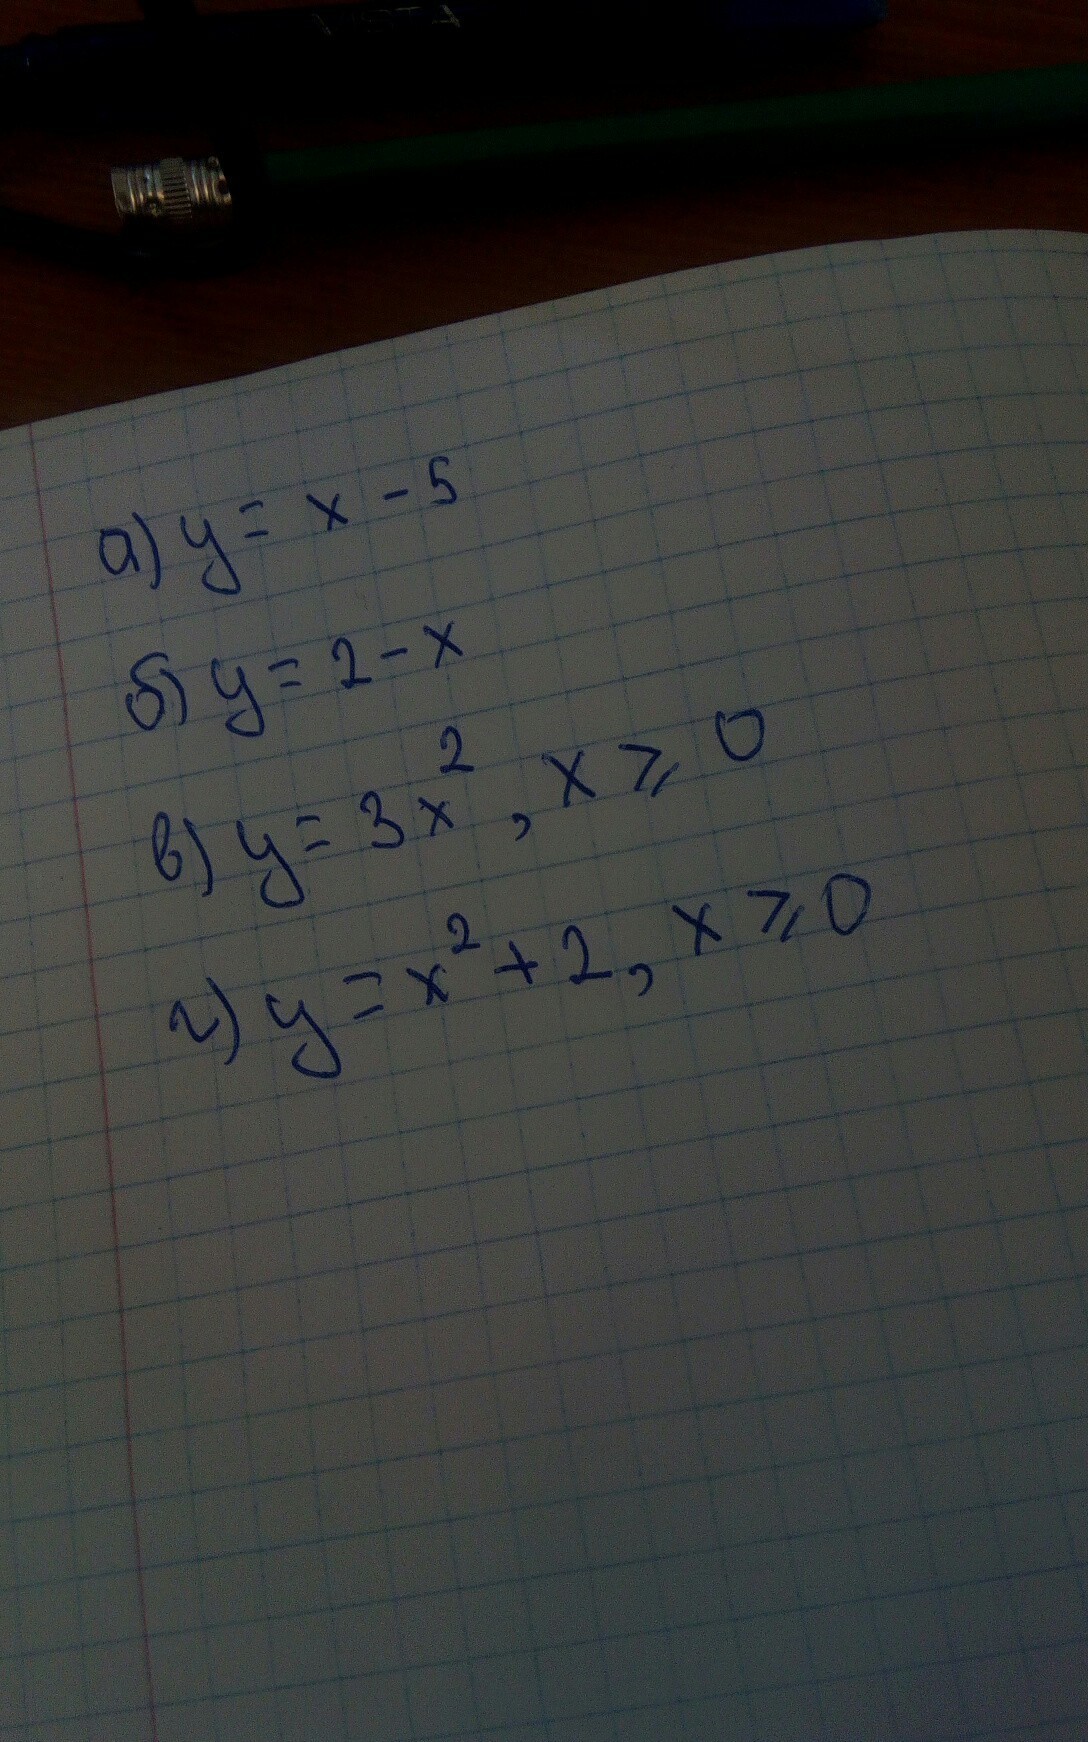 а) y = x - 5
б) y = 2 - x
в) y = 3x², x ⩾ 0
г) y = x² + 2, x ⩾ 0